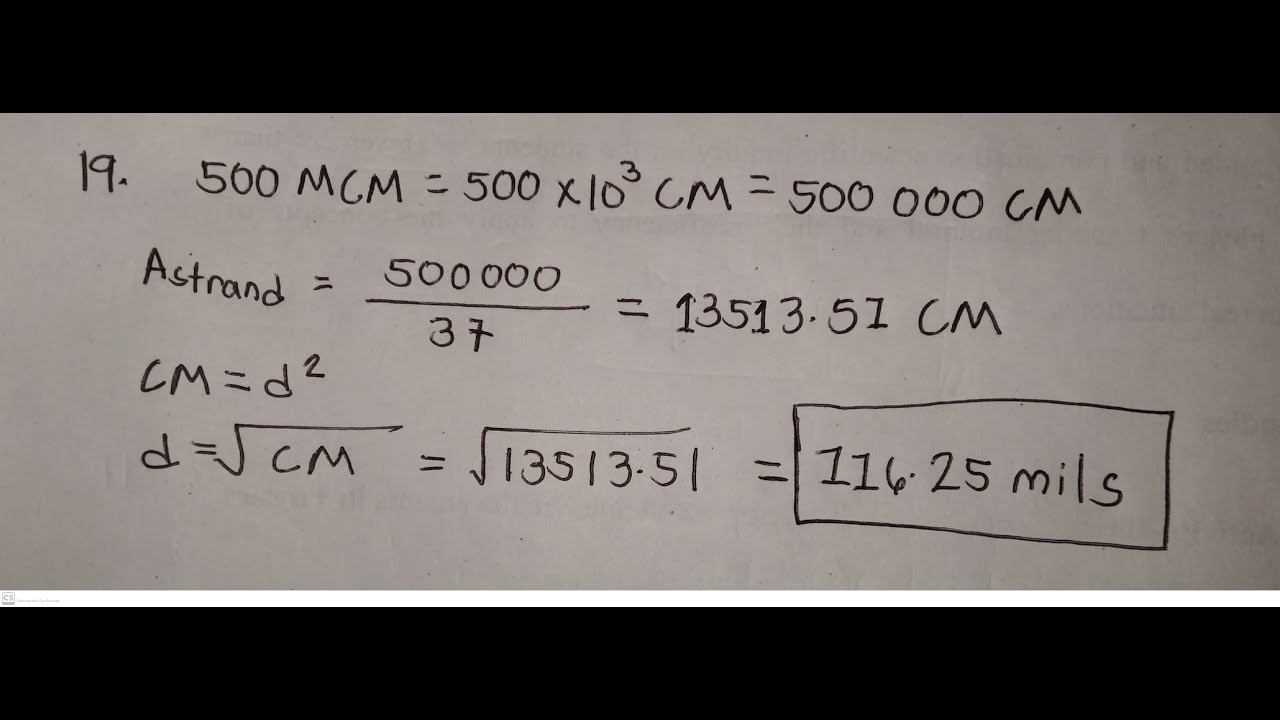 19. 500 MCM = 500 x10³ CM = 500 000 CM
Astrand = 500000 / 37 = 13513.51 CM
CM = d²
d = √CM = √13513.51 = 116.25 mils
CS